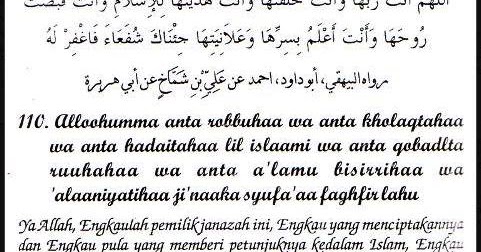 اللَّهُمَّ أَنْتَ رَبُّهَا وَأَنْتَ خَلَقْتَهَا وَأَنْتَ هَدَيْتَهَا لِلْإِسْلَامِ وَأَنْتَ قَبَضْتَ
رُوحَهَا وَأَنْتَ أَعْلَمُ بِسِرِّهَا وَعَلَانِيَتِهَا جِئْنَاكَ شُفَعَاءَ فَاغْفِرْ لَهُ
رواه البيهقي، أبو داود، احمد عن عَلِيِّ بْنِ شَمَّاخٍ عن أبي هريرة
110. Alloohumma anta robbuhaa wa anta kholaqtahaa
wa anta hadaitahaa lil islaami wa anta qobadlta
ruuhahaa wa anta a'lamu bisirrihaa wa
'alaaniyatihaa ji'naaka syufa'aa faghfir lahu
Ya Allah, Engkaulah pemilik janazah ini, Engkau yang menciptakannya
dan Engkau pula yang memberi petunjuknya kedalam Islam, Engkau